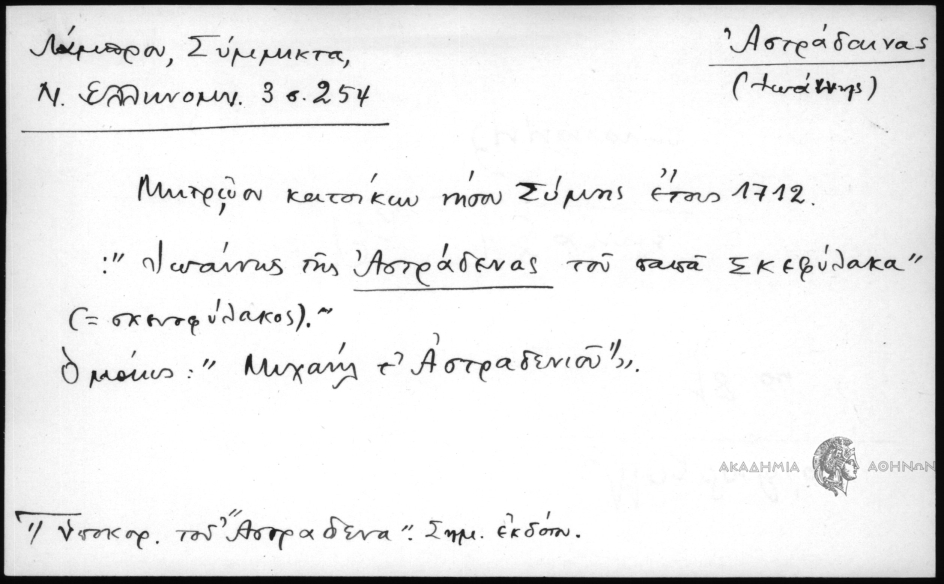 Λάμπρου, Σύμμικτα,
Ν. Ελληνομν. 3 σ. 254
Ἀστράδαινας
(Ἰωάννης)
Μητρῷον κατοίκων νήσου Σύμης ἔτους 1712.
:" Ἰωάννης τῆς Ἀστράδενας τοῦ παπᾶ Σκεφύλακα"
(= σκευοφύλακος)."
Ὁμοίως :" Μιχαήλ τ' Ἀστραδενιοῦ"¹⁾.
ΑΚΑΔΗΜΙΑ ΑΘΗΝΩΝ
1) ὑποκορ. τοῦ "Ἀστραδενα". Σημ. ἐκδότου.